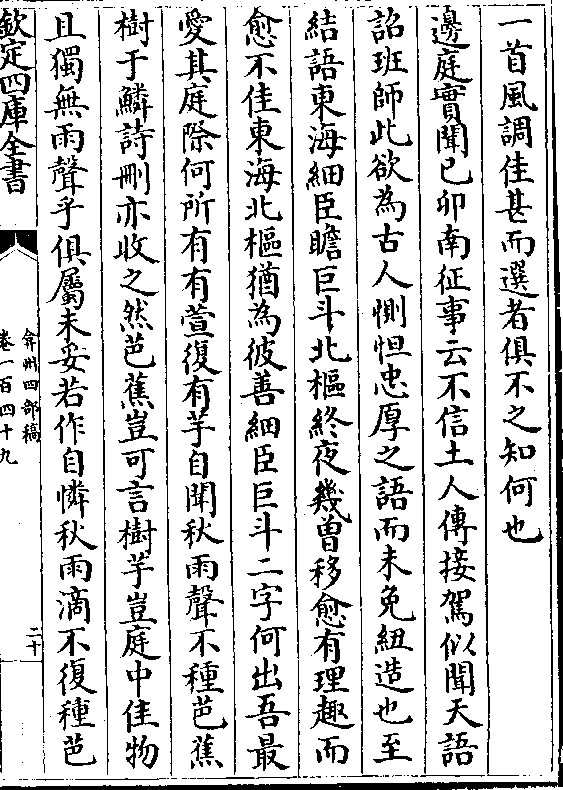 一首風調佳甚而選者俱不之知何也
邊庭實聞己卯南征事云不信土人傳接駕似聞天語
詔班師此欲為古人惻怛忠厚之語而未免紐造也至
結語東海細臣瞻巨斗北樞終夜幾曾移愈有理趣而
愈不佳東海北樞猶為彼善細臣巨斗二字何出吾最
愛其庭除何所有有萱復有芋自聞秋雨聲不種芭蕉
樹于鱗詩刪亦收之然芭蕉豈可言樹芋豈庭中佳物
且獨無雨聲乎俱屬未妥若作自憐秋雨滴不復種芭
欽定四庫全書
弇州四部稿
卷一百四十九
二十